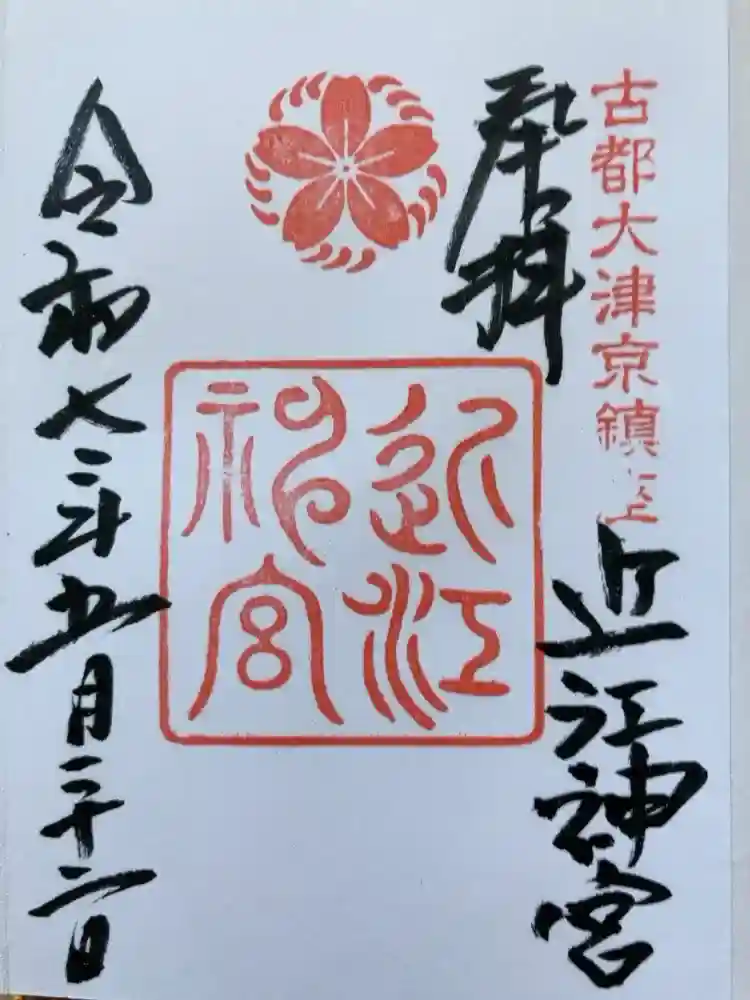 古都大津京鎮座
奉拝
近江神宮
近江神宮
令和七年五月二十二日